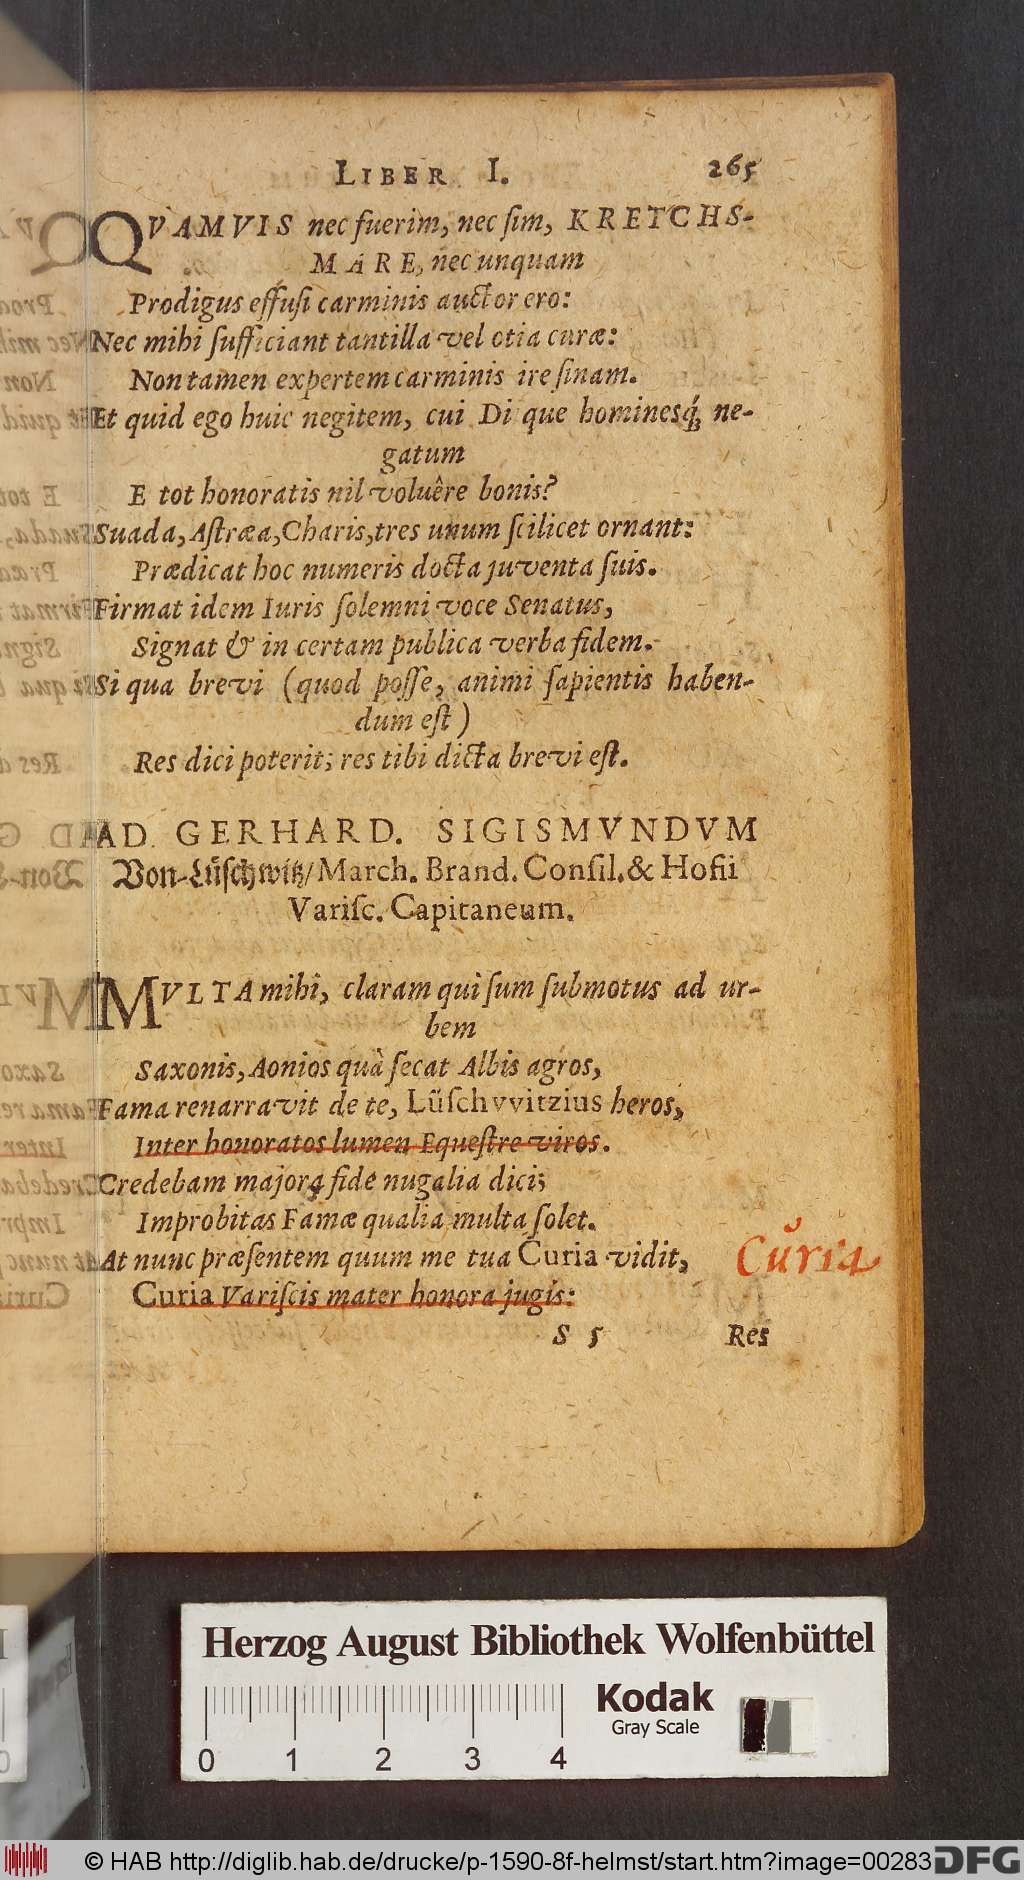 LIBER I. 265
QVAMVIS nec fuerim, nec ſim, KRETCHS-
MARE, nec unquam
Prodigus effuſi carminis auctor ero:
Nec mihi ſufficiant tantilla vel otia curæ:
Non tamen expertem carminis ire ſinam.
Et quid ego huic negitem, cui Di que hominesq́; ne-
gatum
E tot honoratis nil voluêre bonis?
Suada, Aſtræa, Charis, tres unum ſcilicet ornant:
Prædicat hoc numeris docta juventa ſuis.
Firmat idem Iuris ſolemni voce Senatus,
Signat & in certam publica verba fidem.
Si qua brevi (quod poſſe, animi ſapientis haben-
dum eſt)
Res dici poterit; res tibi dicta brevi eſt.
AD GERHARD. SIGISMVNDVM
Von-Lüſchwitz/ March. Brand. Conſil. & Hofii
Variſc. Capitaneum.
MVLTA mihi, claram qui ſum ſubmotus ad ur-
bem
Saxonis, Aonios quà ſecat Albis agros,
Fama renarravit de te, Lüſchvvitzius heros,
Inter honoratos lumen Equeſtre viros.
Credebam majora fide nugalia dici;
Improbitas Famæ qualia multa ſolet.
At nunc præſentem quum me tua Curia vidit,
Curia
Curia Variſcis mater honora jugis:
S 5 Res
Herzog August Bibliothek Wolfenbüttel
Kodak
Gray Scale
0 1 2 3 4
© HAB http://diglib.hab.de/drucke/p-1590-8f-helmst/start.htm?image=00283
DFG